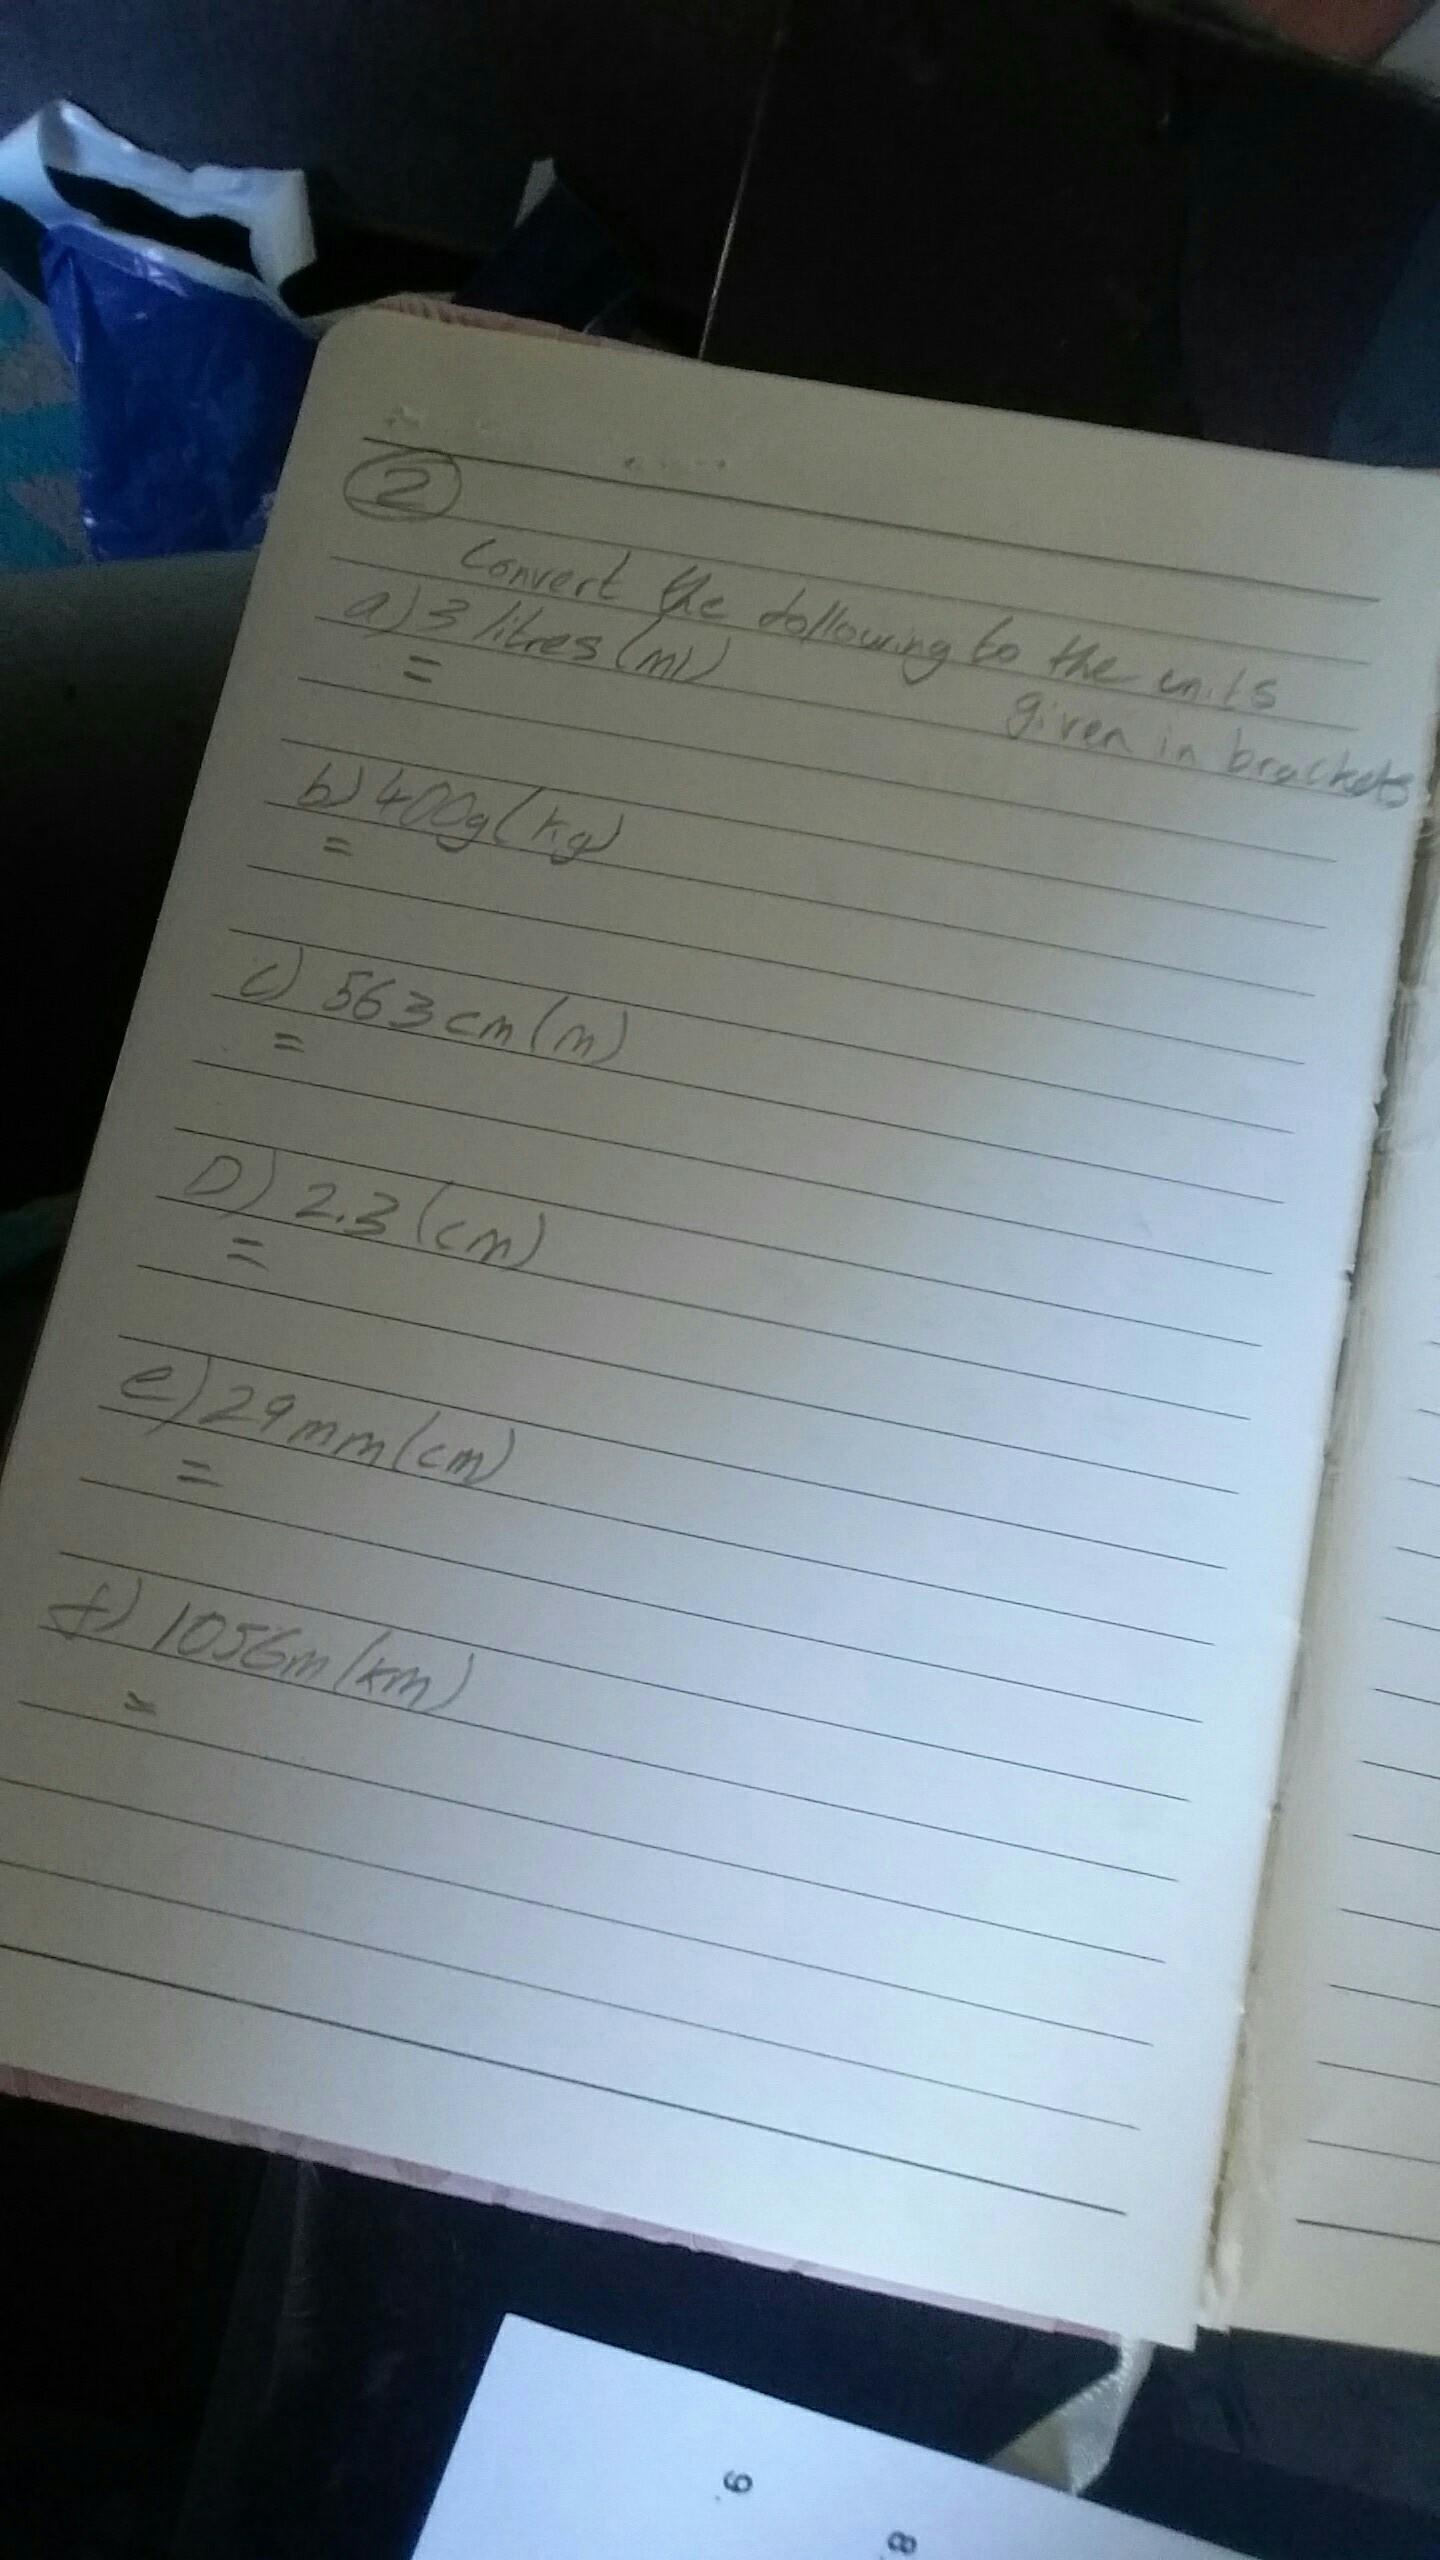 2
Convert the following to the units
given in brackets
a) 3 litres (ml)
=
b) 400g (kg)
=
c) 563 cm (m)
=
D) 2.3 (cm)
=
e) 29mm (cm)
=
f) 1056m (km)
=
6.
8.